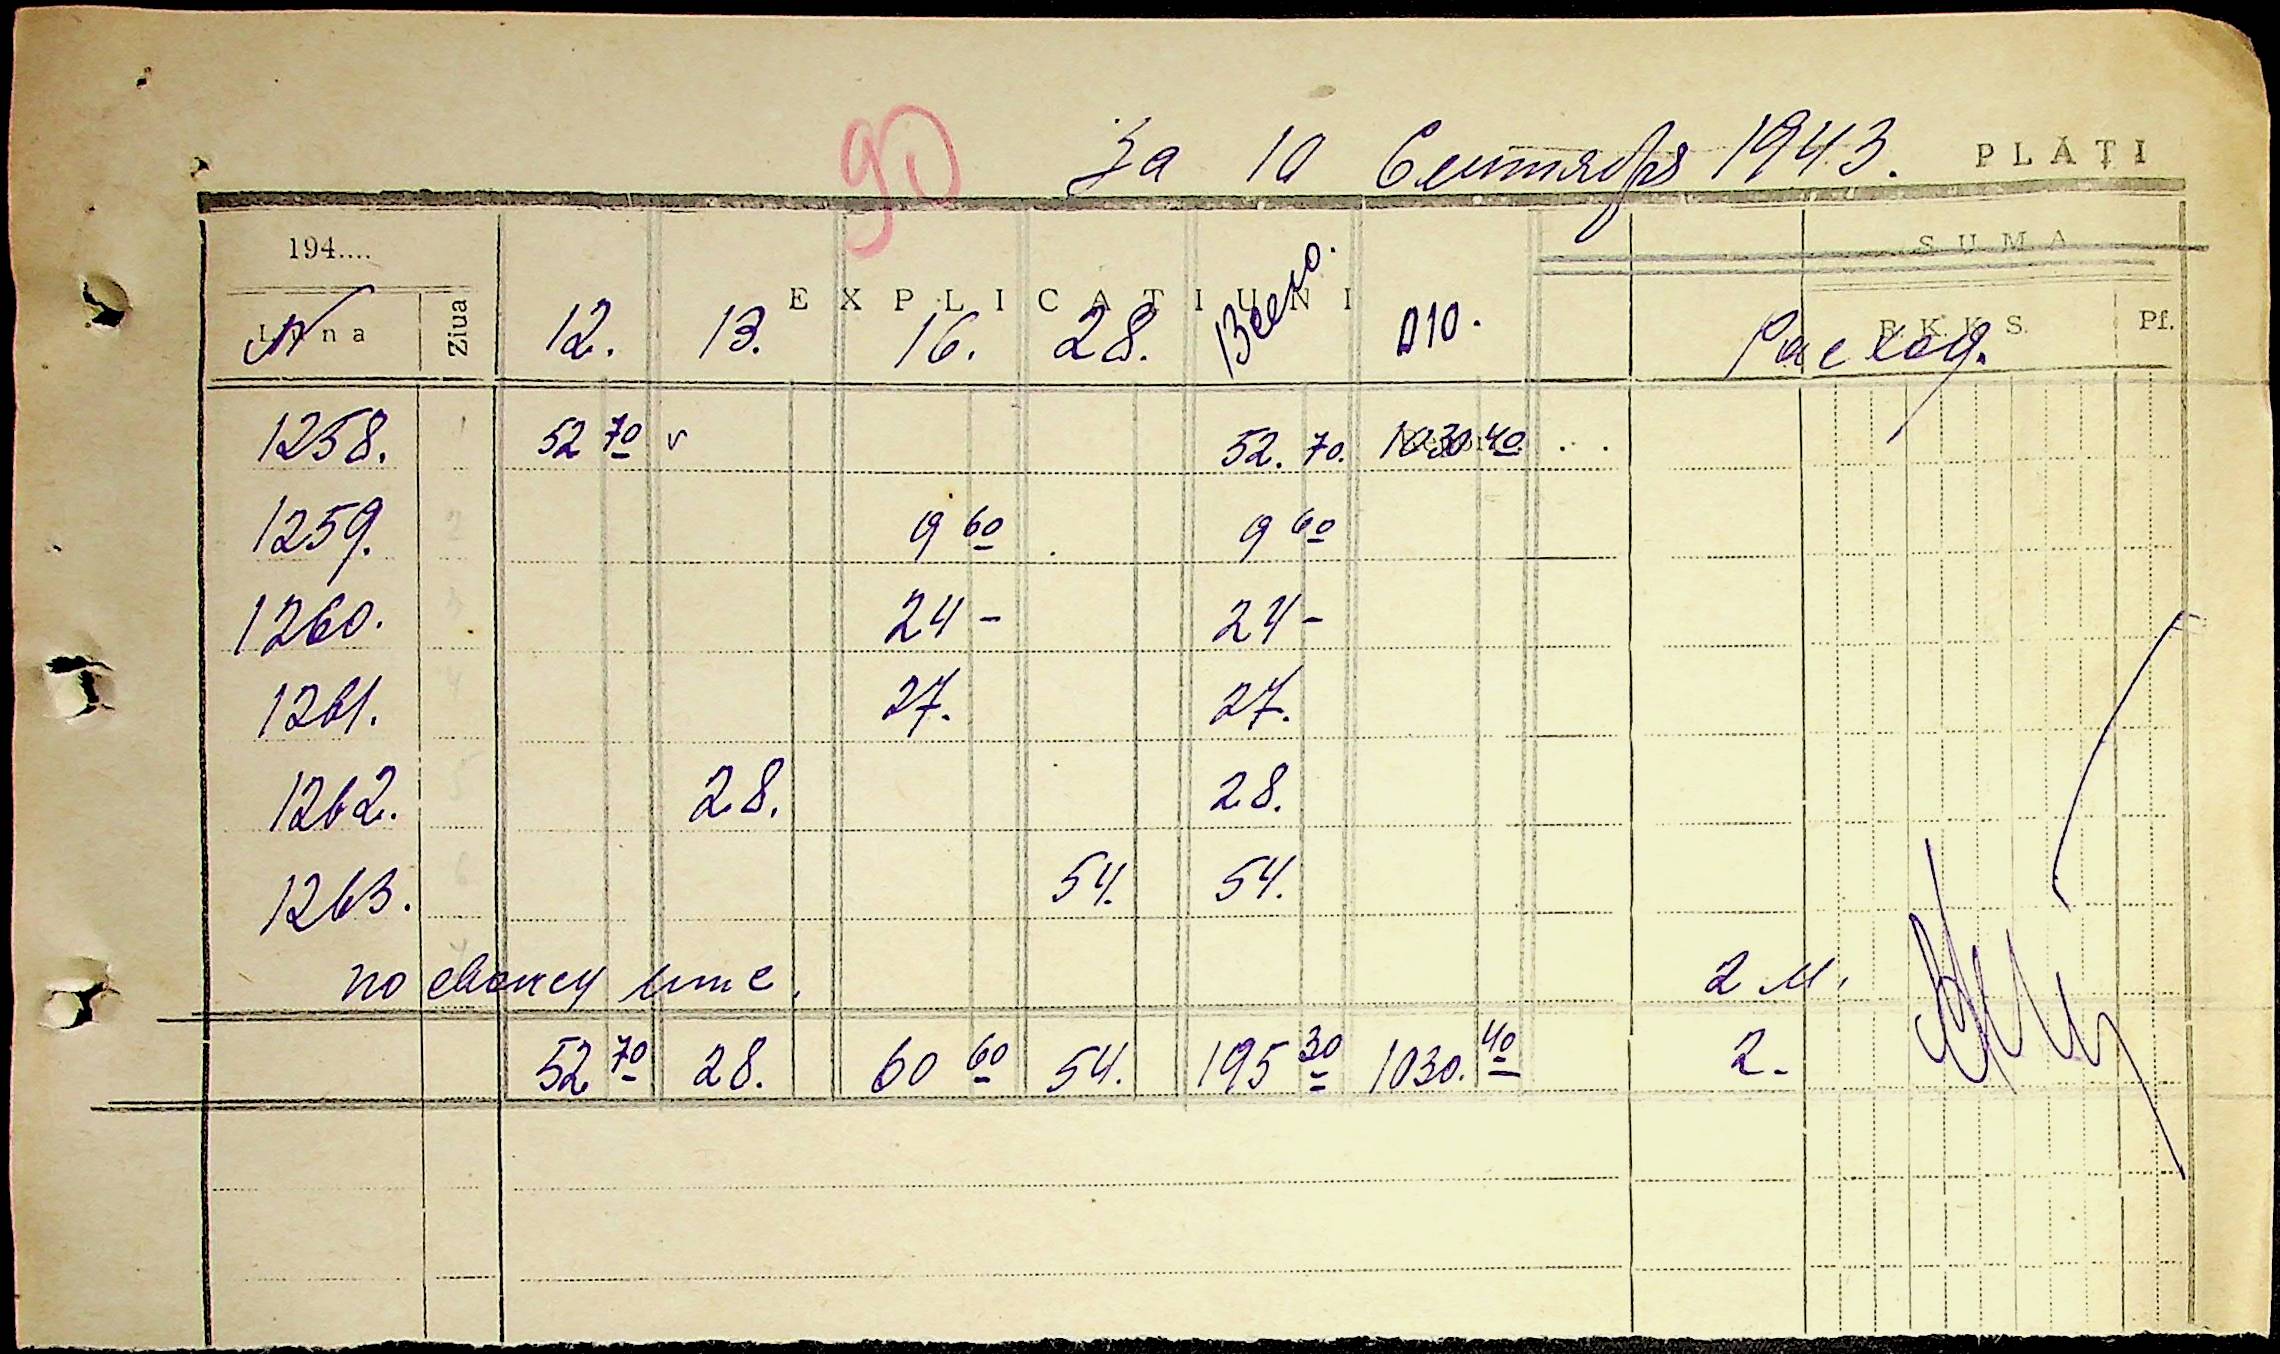 90 За 10 Сентября 1943. PLĂȚI
194....
SUMA
EXPLICAȚIUNI
Luna Ziua R.K.K.S. Pf.
N 12. 13. 16. 28. Всего. Расход.
1258. 1 52 70 v 52. 70. 1030 40
1259. 2 9 60 9 60
1260. 3 24 - 24 -
1261. 4 27. 27.
1262. 5 28. 28.
1263. 6 54. 54.
по 2 м.
52 70 28. 60 60 54. 195 30 1030. 40 2.